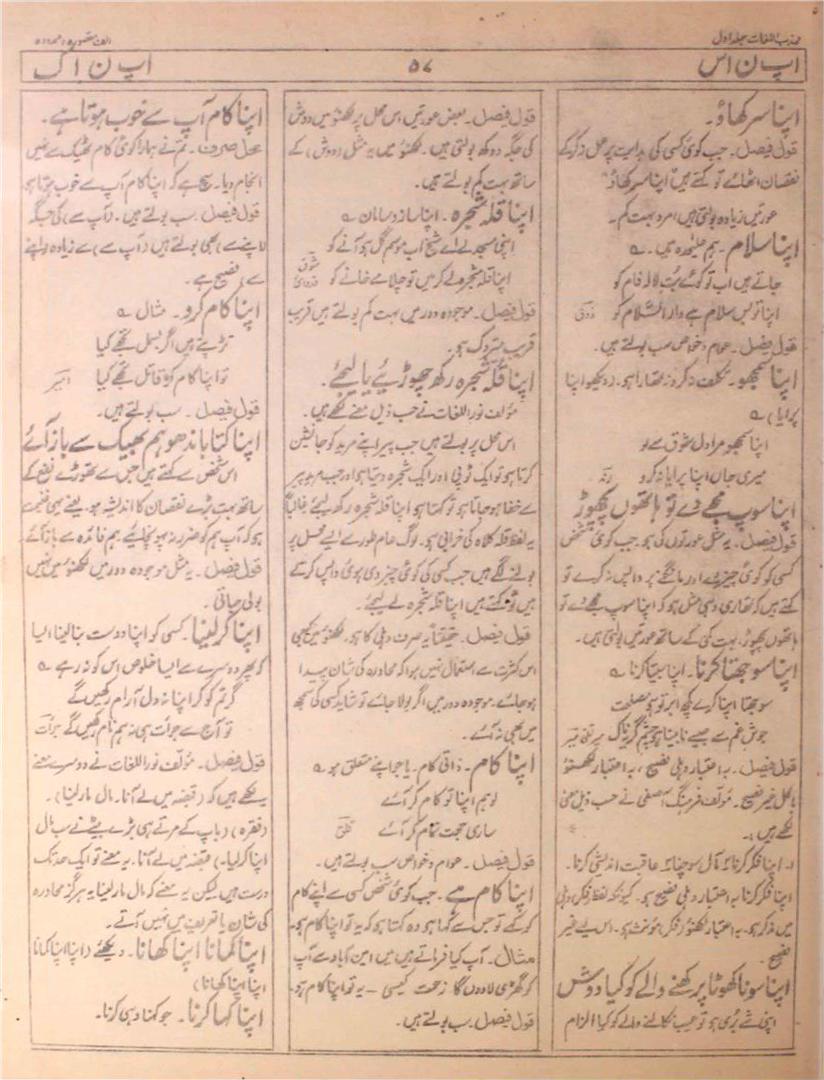 مہذب اللغات جلد اول
الف مقصورہ و ممدودہ
اپ ن اس
۵۷
اپ ن اک
اپنا سر کھاؤ۔
قول فیصل۔ جب کوئی کسی کی ہدایت پر عمل نہ کر کے
نقصان اٹھائے تو کہتے ہیں "اپنا سر کھاؤ"
عورتیں زیادہ بولتی ہیں مرد بہت کم۔
اپنا سلام۔ ہم علیحدہ ہیں۔ ؎
جاتے ہیں اب تو کوئے بت لالہ فام کو
اپنا تو بس سلام ہے دار السّلام کو
قول فیصل۔ عوام و خواص سب بولتے ہیں۔
اپنا سمجھو۔ تکلف نہ کرو۔ تمھارا ہو۔ (دیکھو اپنا
پرایا) ؎
اپنا سمجھو مرا دل شوق سے لو
میری جاں اپنا پرایا نہ کرو رند
اپنا سوپ مجھے دے تو ہاتھوں پچھوڑ
قول فیصل۔ یہ مثل عورتوں کی ہو۔ جب کوئی شخص
کسی کو کوئی چیز دے اور مانگنے پر واپس نہ کرے تو
کہتے ہیں کہ تمھاری وہی مثل ہو کہ اپنا سوپ مجھے دے تو
ہاتھوں پچھوڑ۔ بہت کمی کے ساتھ عورتیں بولتی ہیں۔
اپنا سوجھتا کرنا۔ اپنا بیتا کرنا ؎
سوجھتا اپنا کرے کچھ ابر تو ہو مصلحت
جوش غم سے جیسے نابینا ہو چشم گریناک میر تقی میر
قول فیصل۔ بہ اعتبار دہلی فصیح، بہ اعتبار لکھنؤ
بالکل غیر فصیح۔ مولف فرہنگ آصفی نے حسب ذیل معنی
لکھے ہیں:۔
۱۔ اپنا فکر کرنا ۲۔ مآل سوچنا ۳۔ عاقبت اندیشی کرنا۔
اپنا فکر کرنا بہ اعتبار دہلی فصیح ہو۔ کیونکہ لفظ فکر دہلی
میں مذکر ہو۔ بہ اعتبار لکھنؤ فکر مونث ہو۔ اس لیے غیر
فصیح۔
اپنا سونا کھوٹا پرکھنے والے کو کیا دوش
اپنی شے بری ہو تو عیب نکالنے والے کو کیا الزام
قول فیصل۔ بعض عورتیں اس محل پر لکھنؤ میں دوش
کی جگہ دوکھ بولتی ہیں۔ لکھنؤ میں یہ مثل (دوش) کے
ساتھ بہت کم بولتے ہیں۔
اپنا قلہ شجرہ۔ اپنا ساز و سامان ؎
اپنی مسجد لے اے شیخ اب موسم گل ہو آنے کو
اپنا قلہ شجرہ لے کر میں تو چلا مے خانے کو شوق قدوائی
قول فیصل۔ موجودہ دور میں بہت کم بولتے ہیں قریب
قریب متروک ہو۔
اپنا قلہ شجرہ رکھ چھوڑیئے یا لیجئے۔
مولف نور اللغات نے حسب ذیل معنے لکھے ہیں۔
اس محل پر بولتے ہیں جب پیر اپنے مرید کو جانشین
کرتا ہو تو ایک ٹوپی اور ایک شجرہ دیتا ہو اور جب مرید پیر
سے خفا ہو جاتا ہو تو کہتا ہو اپنا قلہ شجرہ رکھ لیجئے غالباً
یہ لفظ قلہ کلاہ کی خرابی ہو۔ لوگ عام طور سے ایسے محل پر
بولنے لگے ہیں جب کسی کی کوئی چیز دی ہوئی واپس کرتے
ہیں تو کہتے ہیں اپنا قلہ شجرہ لے لیجئے۔
قول فیصل۔ حقیقتاً یہ صرف دہلی کا ہو۔ لکھنؤ میں کبھی
اس کثرت سے استعمال نہیں ہوا کہ محاورہ کی شان پیدا
ہو جائے۔ موجودہ دور میں اگر بولا جائے تو شاید کسی کی سمجھ
میں بھی نہ آئے۔
اپنا کام۔ ذاتی کام۔ یا جو اپنے متعلق ہو ؎
لو ہم اپنا تو کام کر آئے
ساری حجت تمام کر آئے قلق
قول فیصل۔ عوام و خواص سب بولتے ہیں۔
اپنا کام ہے۔ جب کوئی شخص کسی سے اپنے کام
کو کہے تو جس سے کہا ہو وہ کہتا ہو کہ یہ تو اپنا کام ہو۔
مثال۔ آپ کیا فرماتے ہیں میں امین آباد سے آپ
کو گھڑی لا دوں گا زحمت کیسی۔ یہ تو اپنا کام ہو۔
قول فیصل۔ سب بولتے ہیں۔
اپنا کام آپ سے خوب ہوتا ہے۔
محل صرف۔ تم نے ہمارا کوئی کام ٹھیک سے نہیں
انجام دیا۔ سچ ہے کہ اپنا کام آپ سے خوب ہوتا ہو
قول فیصل۔ سب بولتے ہیں۔ (آپ سے) کی جگہ
(اپنے سے) بھی بولتے ہیں (آپ سے) سے زیادہ (اپنے
سے) فصیح ہے۔
اپنا کام کرو۔ مثال ؎
تڑپتے ہیں اگر بسمل تجھے کیا
تو اپنا کام کر قاتل تجھے کیا امیر
قول فیصل۔ سب بولتے ہیں۔
اپنا کتا باندھو ہم بھیک سے باز آئے
اس شخص سے کہتے ہیں جس سے تھوڑے نفع کے
ساتھ بہت بڑے نقصان کا اندیشہ ہو۔ یعنے یہی غنیمت
ہو کہ آپ ہم کو ضرر نہ پہونچائیے ہم فائدہ سے باز آئے
قول فیصل۔ یہ مثل موجودہ دور میں لکھنؤ میں نہیں
بولی جاتی۔
اپنا کر لینا۔ کسی کو اپنا دوست بنا لینا ایسا
کہ پھر دوسرے سے ایسا خلوص اس کو نہ رہے ؎
گر تم کو کر اپنا نہ دل آرام رکھیں گے
تو آج سے جرأت ہی نہ ہم نام رکھیں گے جرأت
قول فیصل۔ مولف نور اللغات نے دوسرے معنے
یہ لکھے ہیں کہ (قبضہ میں لے آنا۔ مال مار لینا)۔
(فقرہ) (باپ کے مرتے ہی بڑے بیٹے نے سب مال
اپنا کر لیا۔) قبضہ میں لے آنا۔ یہ معنے تو ایک حد تک
درست ہیں لیکن یہ معنے کہ مال مار لینا یہ ہرگز محاورہ
کی شان یا تعریف میں نہیں آتے۔
اپنا کمانا اپنا کھانا۔ دیکھئے (اپنا اپنا کمانا
اپنا اپنا کھانا)
اپنا کہا کرنا۔ جو کہنا وہی کرنا۔